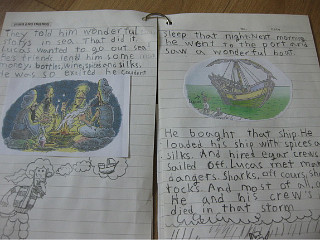 They told him wonderful
storys in sea. That did it
Lucas wanted to go out sea
his friends lend him some
money, bottles, Wine, spices and silks.
He was so excited he couldn't
sleep that night. Next morning
he went to the port and
saw a wonderful boat.
He bought that ship. He
loaded his ship with spices a
silks. And hired eguar crews
sailed off. Lucas met ma
dangers. Sharks, off cours, sh
rocks. And most of all, a
He and his crew's
died in that storm